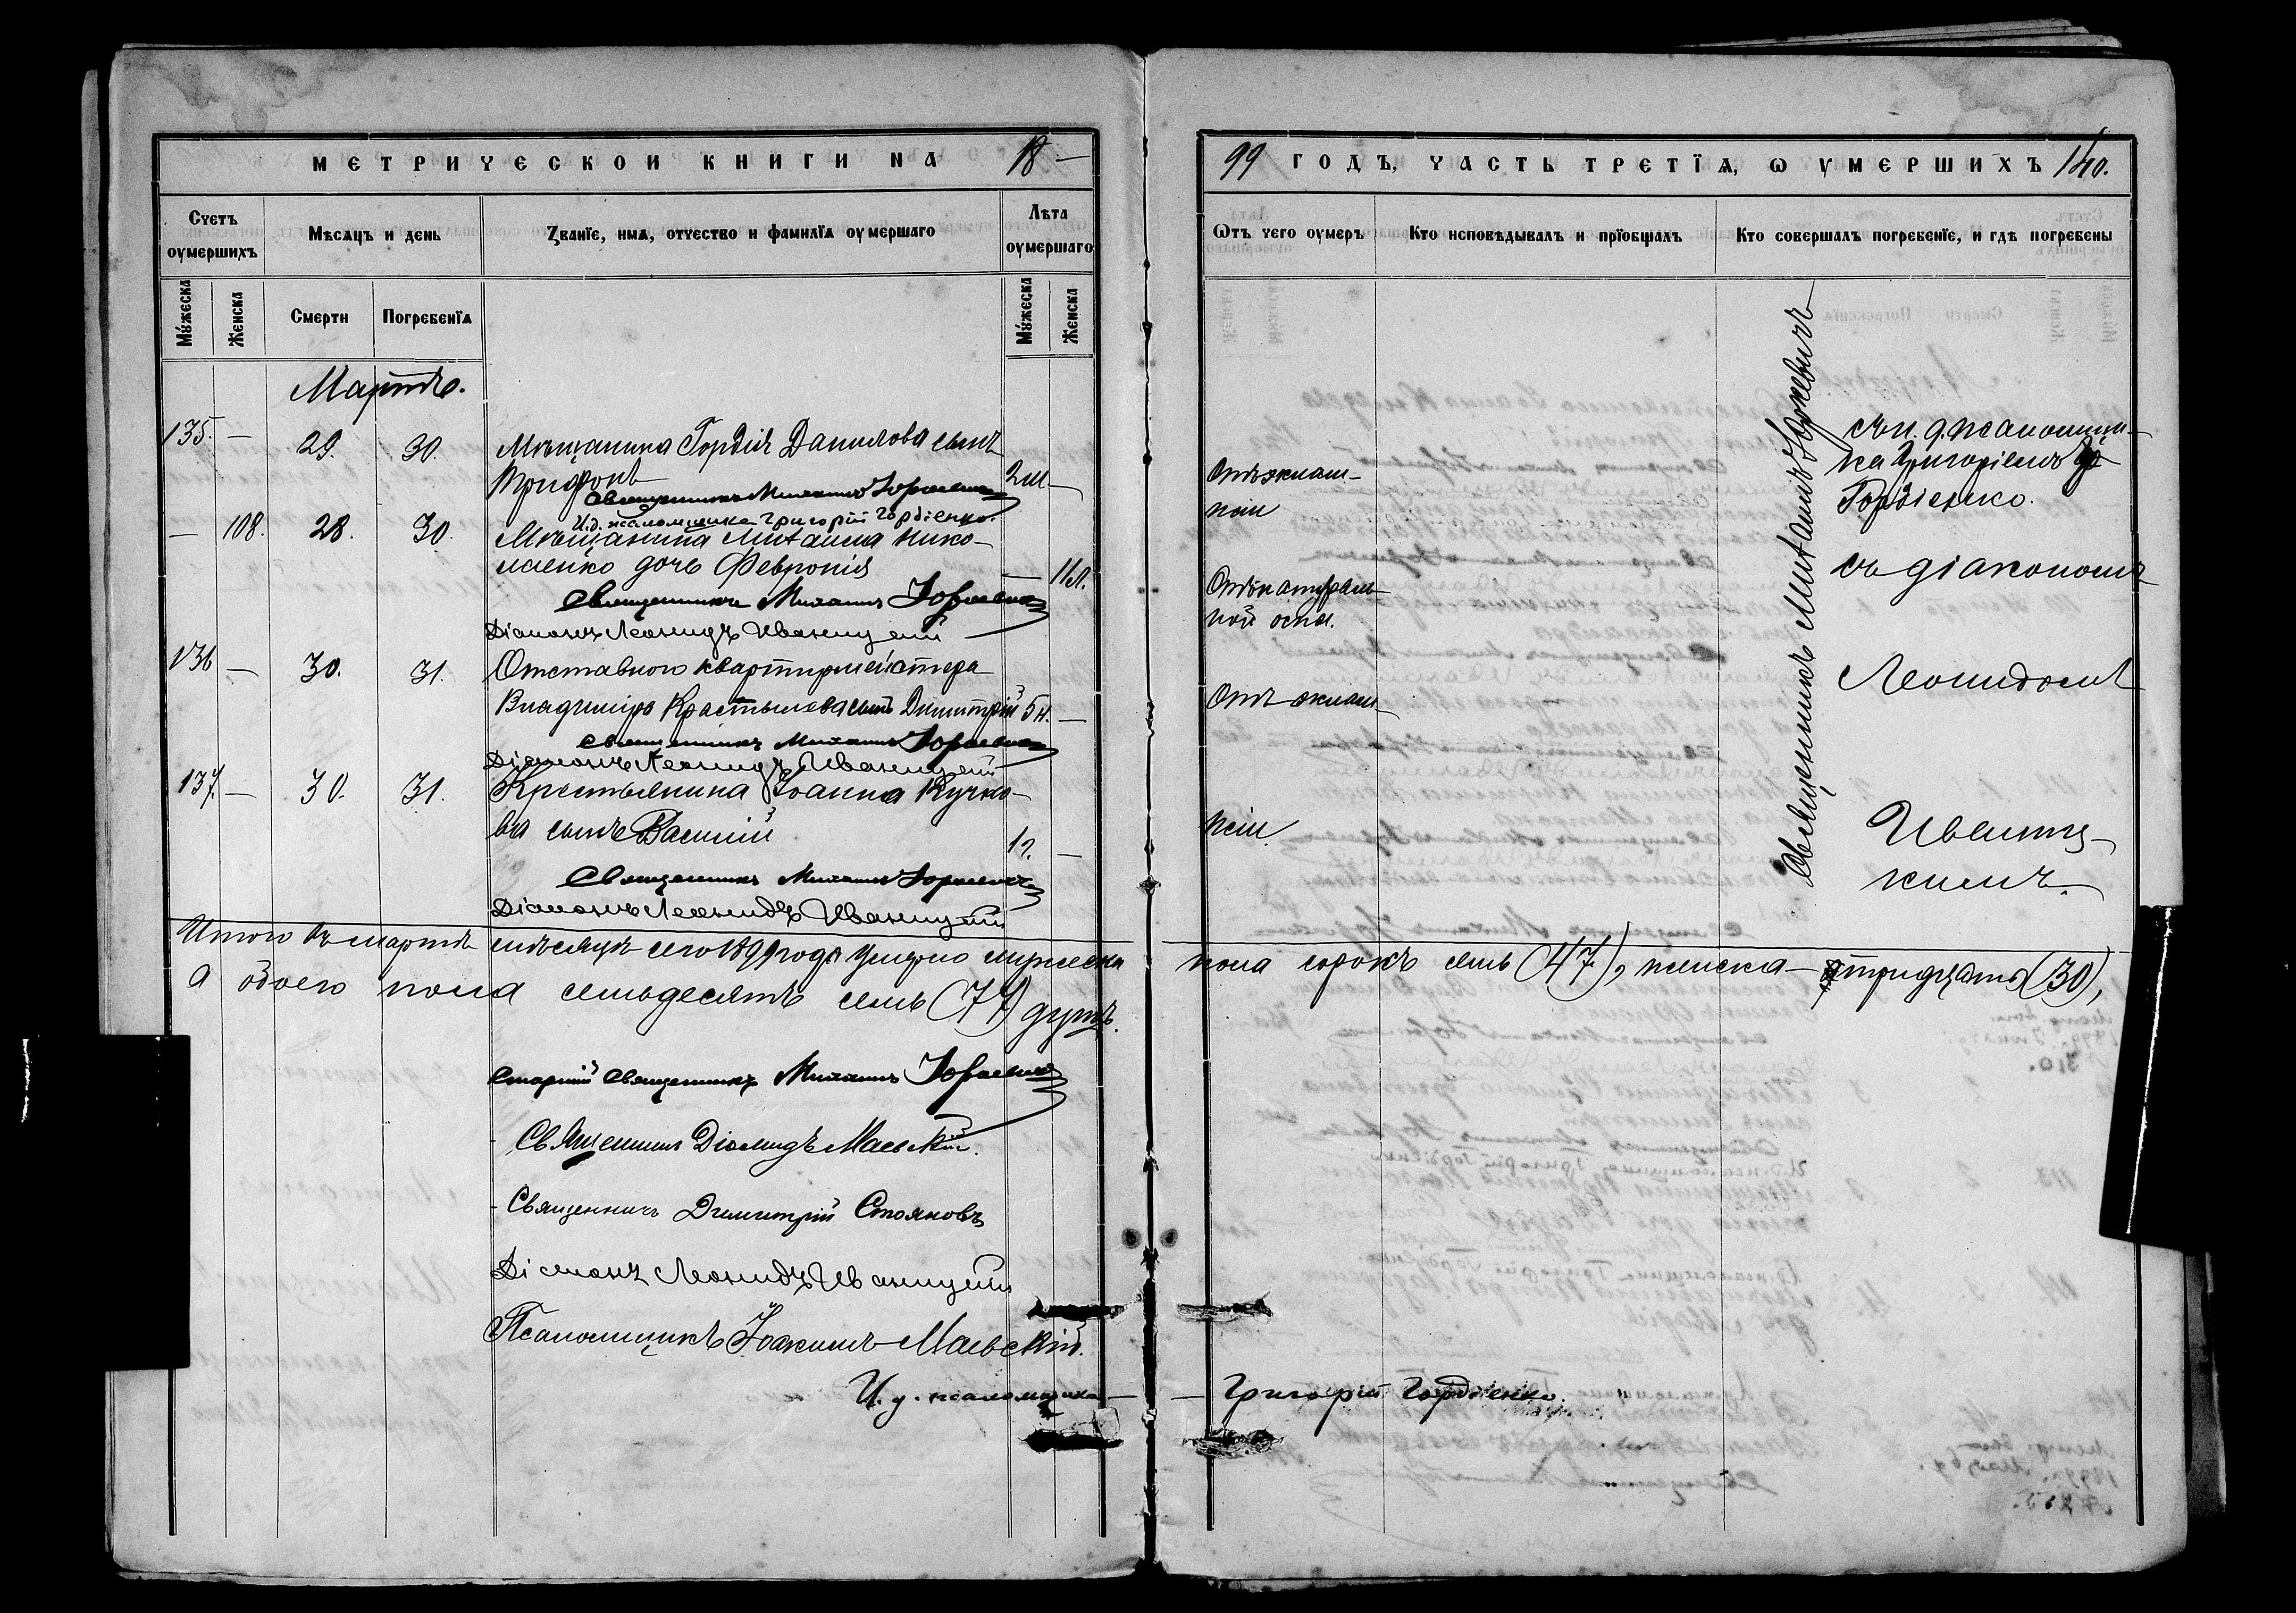 МЕТРИЧЕСКОЙ КНИГИ НА 18—
Счетъ оумершихъ
Мѣсяцъ и день
Званіе, имя, отчество и фамилія оумершаго
Лѣта оумершаго
Мужеска
Женска
Смерти
Погребенія
Мужеска
Женска
Мартъ.
135. — 29. 30. Мѣщанина Гордія Данилова сынъ
Трифонъ 2 м. —
Священникъ Михаилъ
И. д. псаломщика Григорій Гордіенко.
— 108. 28. 30. Мѣщанина Михаила Нико-
лаенко дочь Февронія — 11 л.
Священникъ Михаилъ
Діаконъ Леонидъ Иваницкій
136 — 30. 31. Отставного квартирмейстера
Владиміра сынъ Димитрій 5 н. —
Священникъ Михаилъ
Діаконъ Леонидъ Иваницкій
137. — 30. 31. Крестьянина Іоанна Кучко-
ва сынъ Василій 1 г. —
Священникъ Михаилъ
Діаконъ Леонидъ Иваницкій
Итого въ мартѣ мѣсяцѣ сего 1899 года умерло мужеска
а обоего пола семьдесятъ семь (77) душъ.
Старшій Священникъ Михаилъ
Священникъ Діомидъ Маевскій.
Священникъ Димитрій Стояновъ
Діаконъ Леонидъ Иваницкій
Псаломщикъ Іоакимъ Маевскій.
И. д. псаломщика —
99 ГОДЪ, ЧАСТЬ ТРЕТІЯ, Ѡ УМЕРШИХЪ 140.
Ѡтъ чего оумеръ
Кто исповѣдывалъ и пріобщалъ
Кто совершалъ погребеніе, и гдѣ погребены
Священникъ Михаилъ
съ и. д. псаломщи-
ка Григоріемъ
Гордіенко.
Отъ эклам-
псіи
Отъ натураль-
ной оспы.
съ діакономъ
Отъ эклам-
Леонидомъ
псіи.
Иваниц-
кимъ.
пола сорокъ семь (47), женска — тридцать (30),
— Григорій Гордіенко.